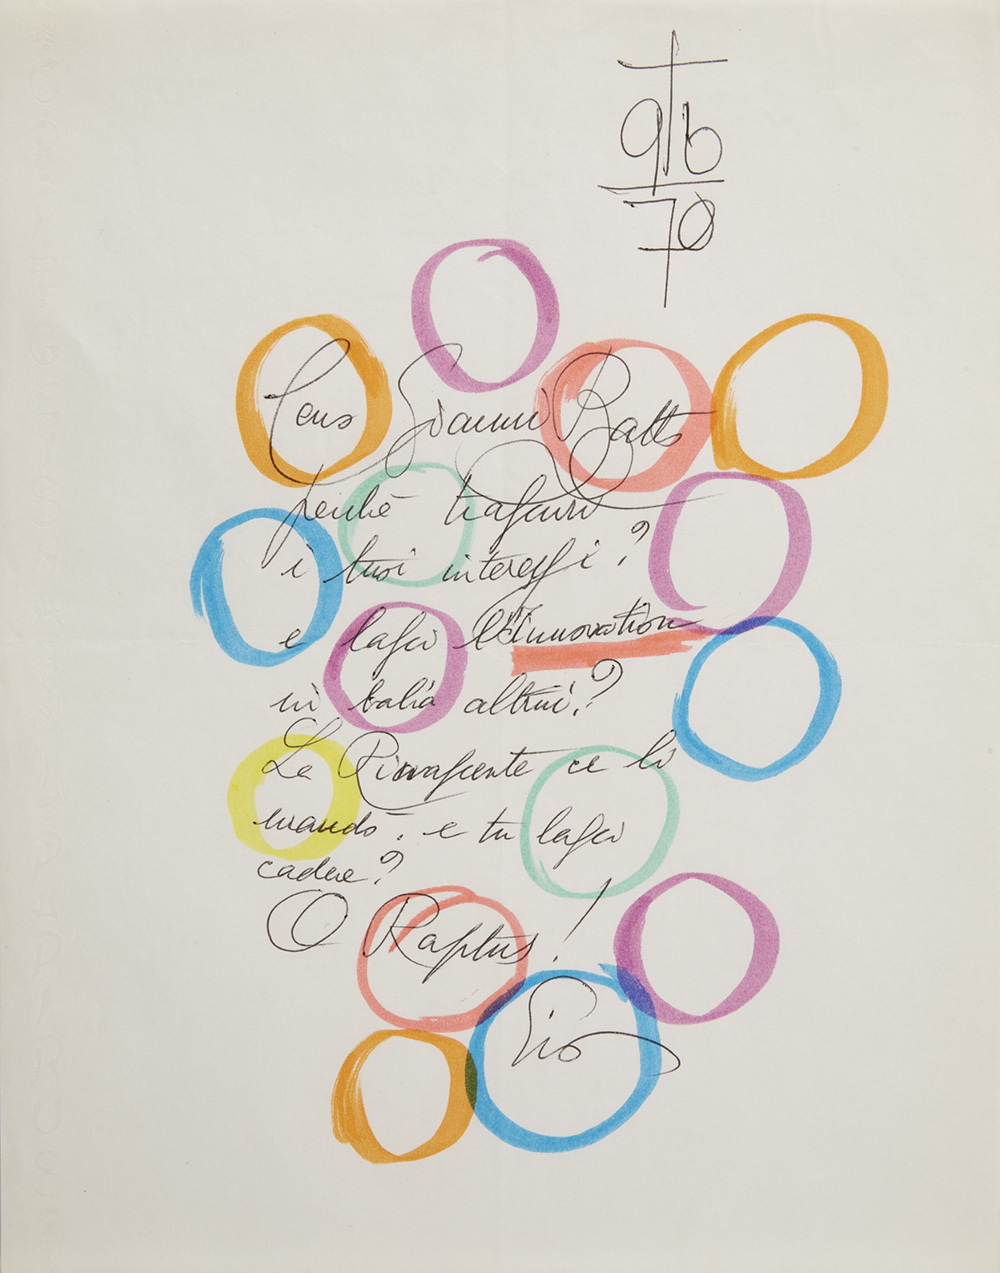 9 6
70
Caro Gianni Batts
perchè trascuri
i tuoi interessi?
e lasci l'Innovation
in balìa altrui?
La Rinascente ce li
mandò. e tu lasci
cadere?
O Raptus!
Pio